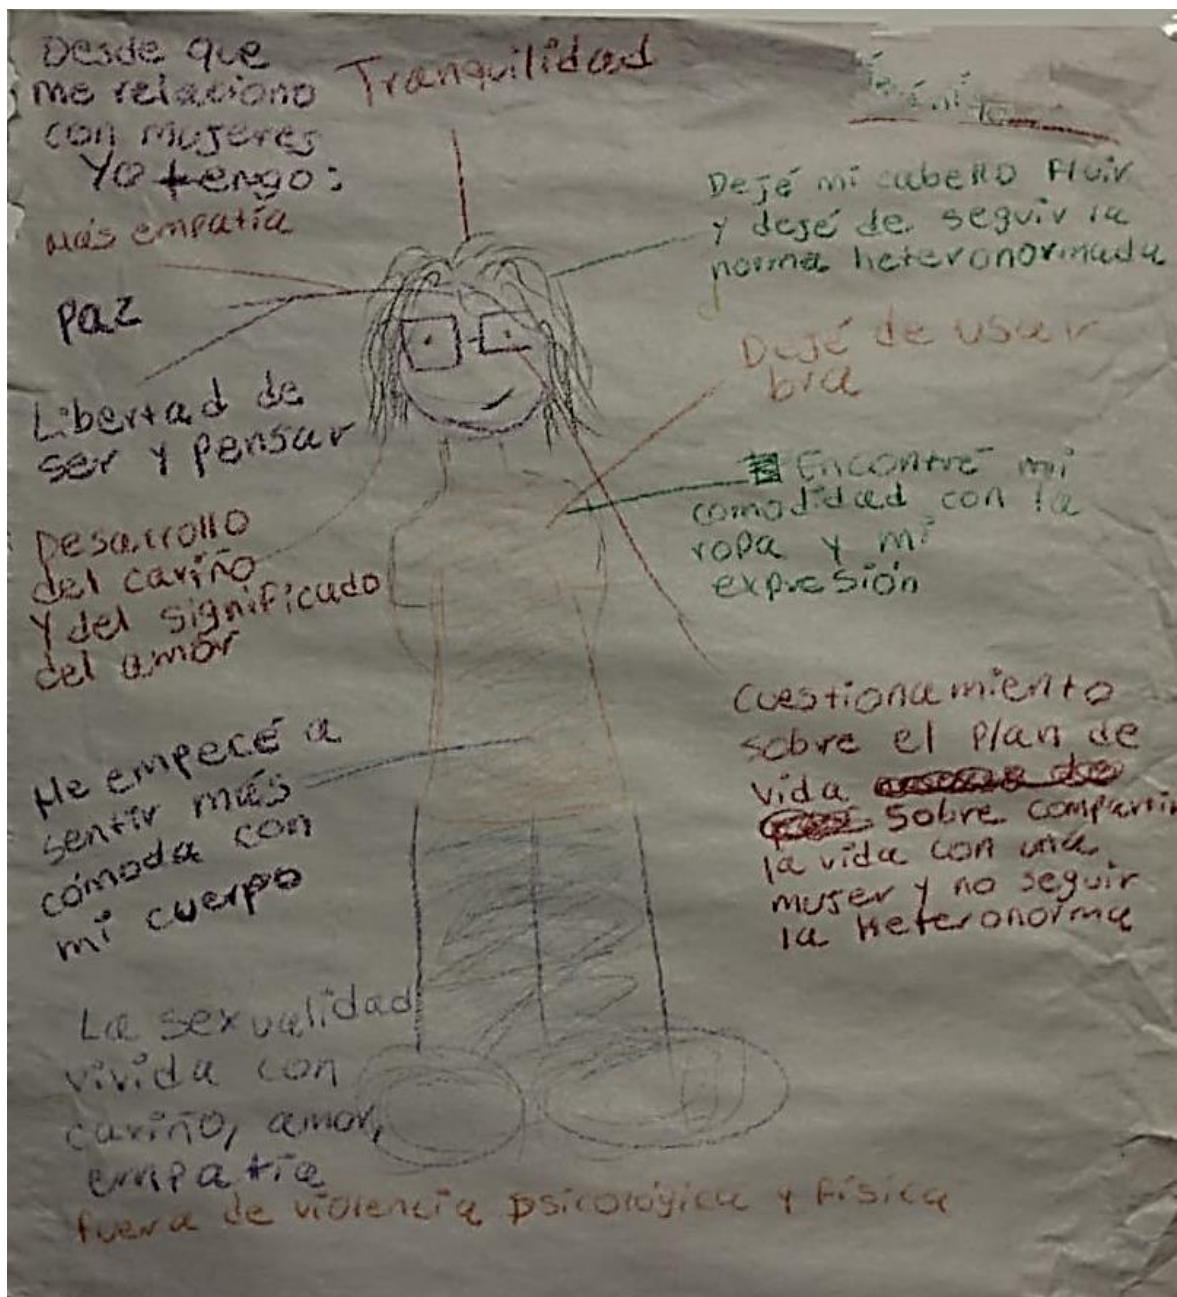 Desde que
me relaciono
con mujeres
Yo tengo:
más empatía
Paz
Libertad de
ser y pensar
Desarrollo
del cariño
y del significado
del amor
Me empecé a
sentir más
cómoda con
mi cuerpo
La sexualidad
vivida con
cariño, amor,
empatía
fuera de violencia psicológica y física
Tranquilidad
Dejé mi cabello fluir
y dejé de seguir la
norma heteronormada
Dejé de usar
bra
Encontré mi
comodidad con la
ropa y mi
expresión
Cuestionamiento
sobre el plan de
vida
sobre compartir
la vida con una
mujer y no seguir
la heteronorma